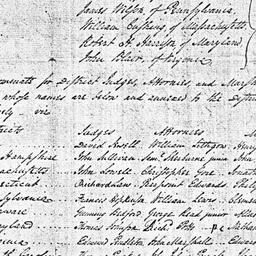 James Wilson, of Pennsylvania.
William Cushing, of Massachusetts.
Robert H. Harrison, of Maryland
John Blair, of Virginia
for District Judges, Attornies, and Marsh
whose names are below and annexed to the Distric
viz
Judges Attornies
David Sewell William Lithgow Henr
Hampshire John Sullivan Saml Sherburne junr John
sachusetts John Lowell Christopher Gore Jonath
ecticut Richard Law Pierpont Edwards Philip
Francis Hopkinson William Lewis Clemen
aware Gunning Bedford George Read junior Allan
ryland Thomas Johnson Richd Potts Nathan
Edmund Pendleton John Marshall Edward